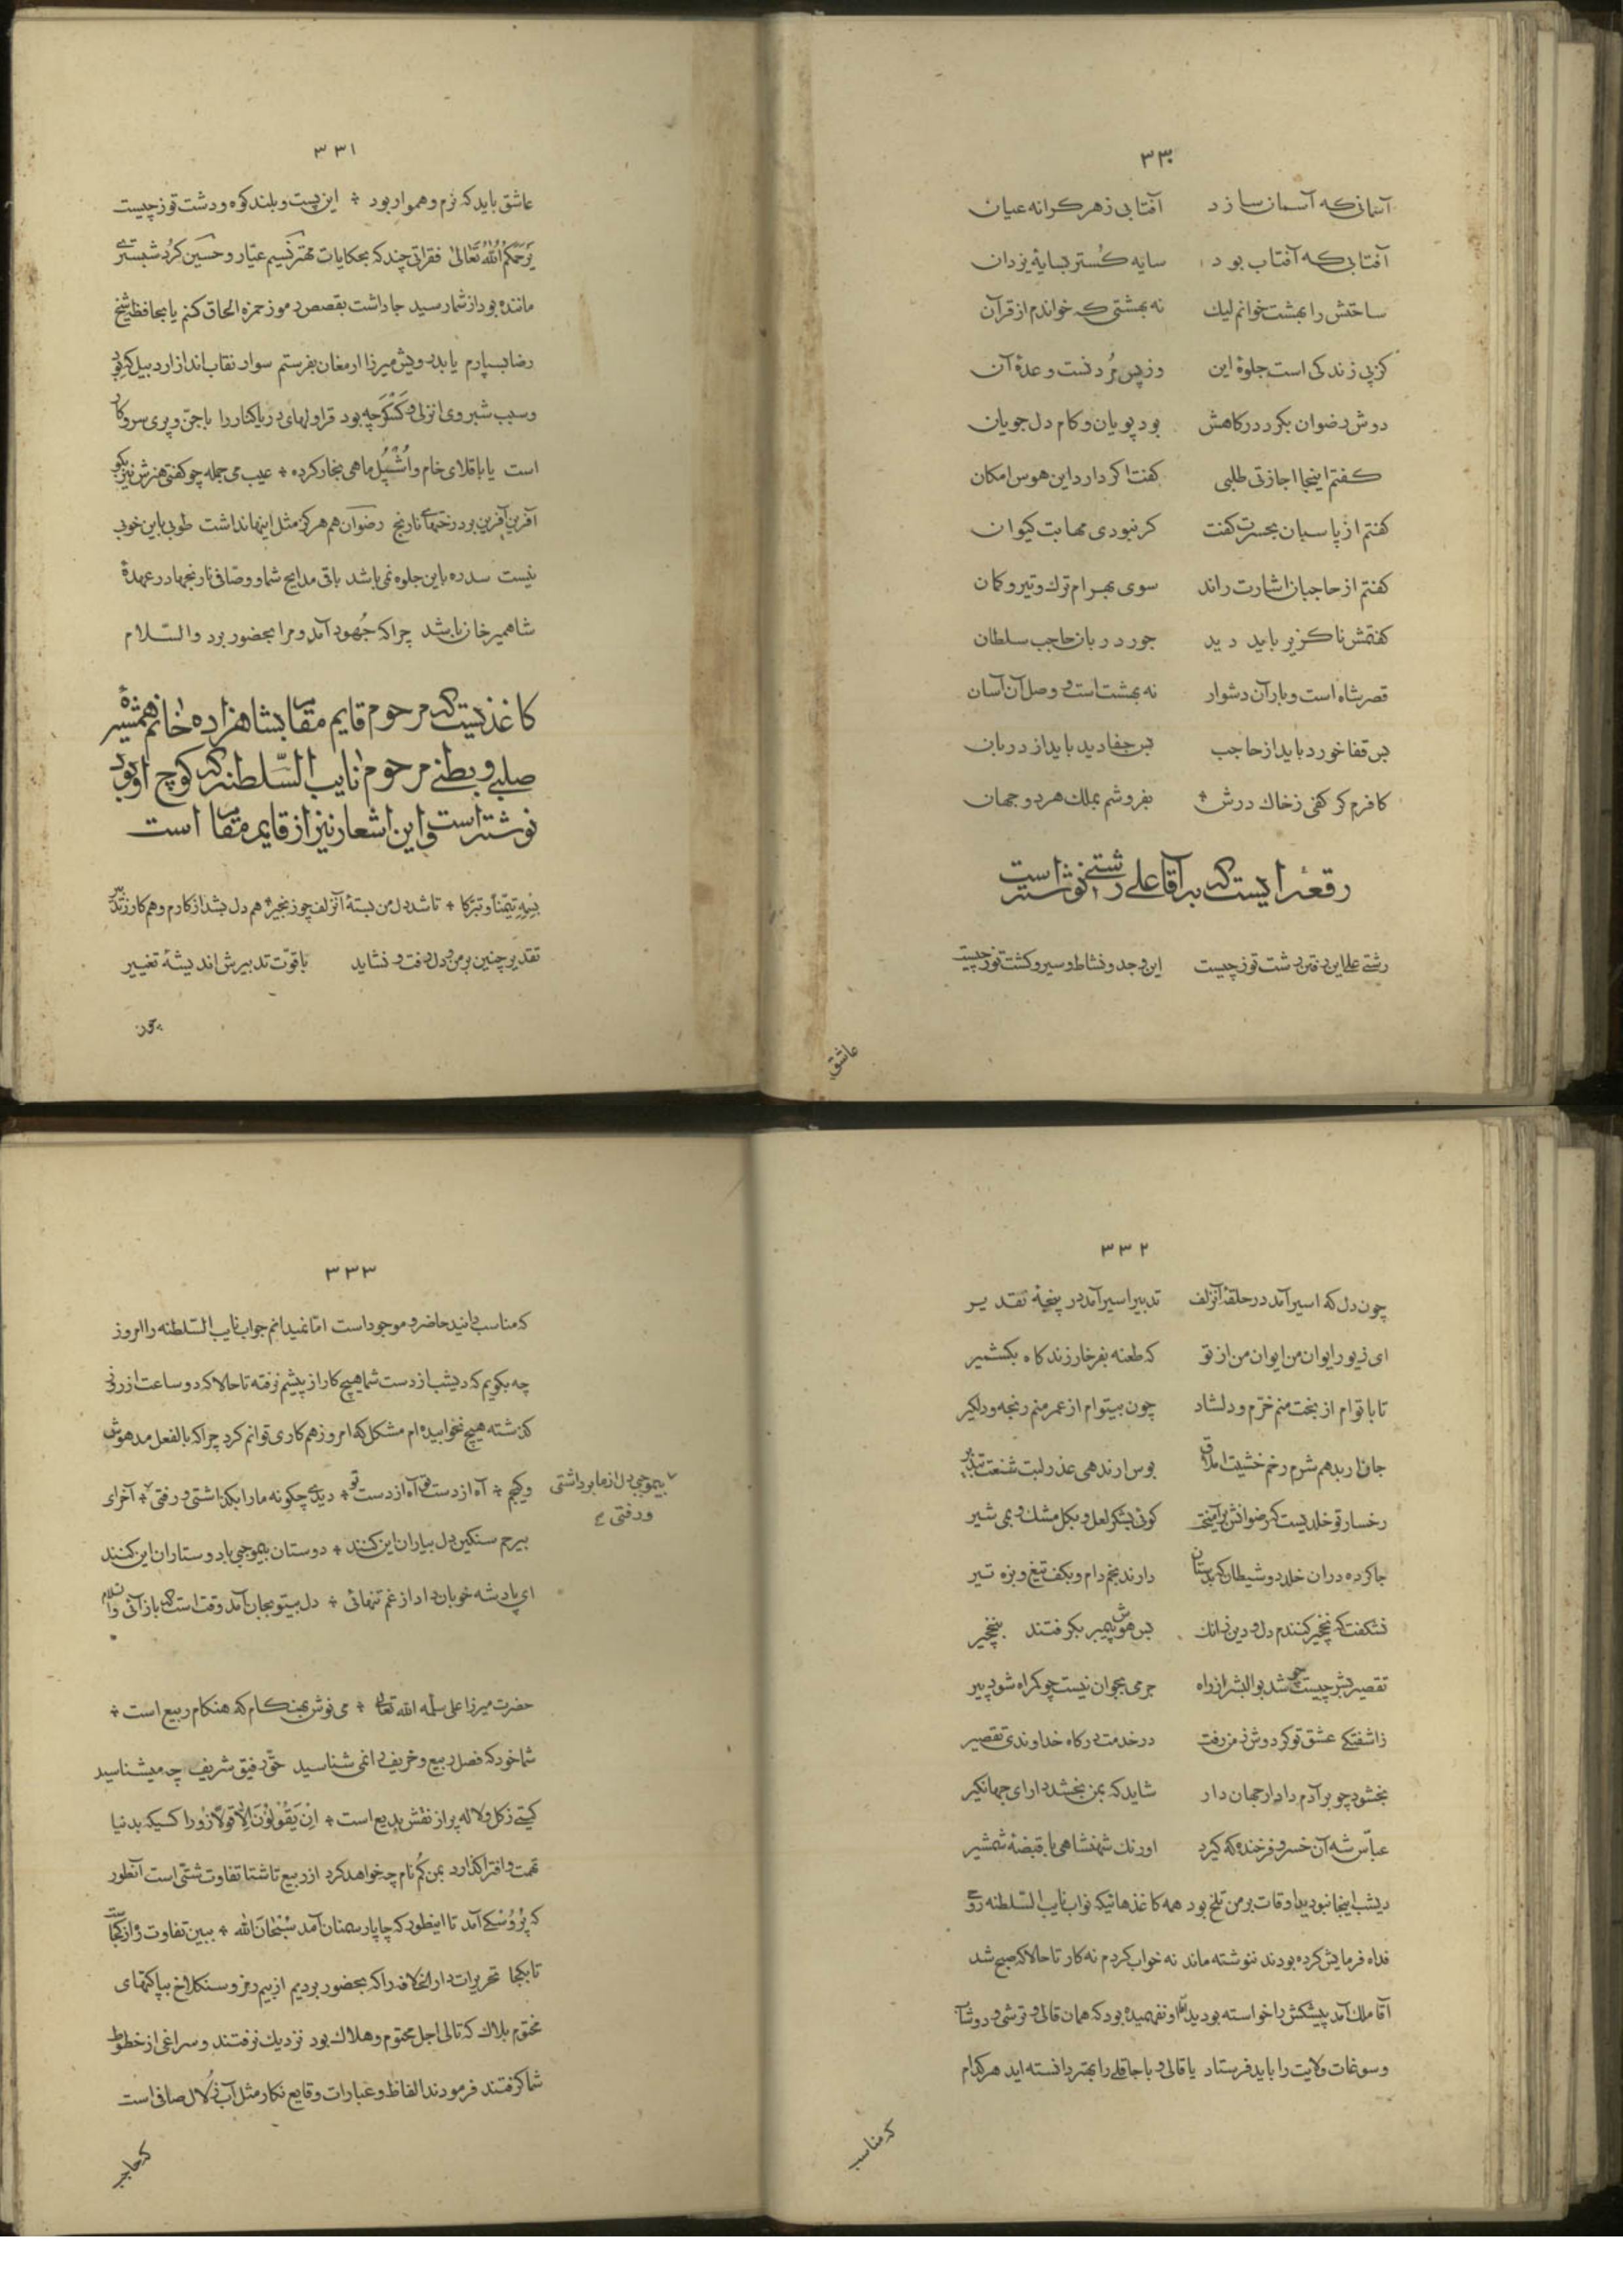 ۳۳۰
آسمانی که آسمان سازد آفتابی ز هر کرانه عیان
آفتابی که آفتاب بود سایه گستر بسایۀ یزدان
ساحتش را بهشت خوانم لیک نه بهشتی که خواندم از قرآن
کز پی زندگی است جلوۀ این وز پس مُردنست وعدۀ آن
دوش رضوان بگرد درگاهش بود پویان و کام دل جویان
گفتم اینجا اجازتی طلبی گفت اگر دارد این هوس امکان
گفتم از پاسبان بحسرت گفت گر نبودی مهابت کیوان
گفتم از حاجبان اشارت راند سوی بهرام ترک و تیر و کمان
گفتمش ناگزیر باید دید جور دربان حاجب سلطان
قصر شاه است و بار آن دشوار نه بهشت است و وصل آن آسان
بس قفا خورد باید از حاجب بس جفا دید باید از دربان
کافرم گر کفی ز خاک درش بفروشم بملک هر دو جهان
رقعۀ ایست که بر آقا علی رشتی نوشته است
رشتی علی این رفتن دشت تو ز چیست این وجد و نشاط و سیر و گشت تو ز چیست
عاشق
۳۳۱
عاشق باید که نرم و هموار بود این پست و بلند کوه و دشت تو ز چیست
یَرحَمُکُم اللهُ تَعالی فقراتی چند که بحکایات مهتر نسیم عیّار و حسین کُرد شبستری
مانده بود از شما رسید جا داشت بقصص رموز حمزه الحاق کنم یا بحافظ شیخ
رضا بسپارم یا بدرویش میرزا ارمغان بفرستم سوار نقاب انداز اردبیل که بود
وسبب شبروی انزلی و کَسگر چه بود قراولهای دریا کنار را با جن و پری سر و کار
است یا باقلای خام و اُشپُل ماهی بخار کرده عیب می جمله چو گفتی هنرش نیز بگو
آفرین آفرین بر درختهای نارنج رضوان هم هرگز مثل اینها نداشت طوبی باین خوبی
نیست سدره باین جلوه نمی باشد باقی مدایح شما و وصّافی نارنجها در عهدۀ
شاهمیر خان باشد چرا که جُهود آمد و مرا بحضور برد والسّلام
کاغذیست که مرحوم قایم مقام بشاهزاده خانم همشیرۀ
صلبی و بطنی مرحوم نایب السّلطنه که کوچ او بود
نوشته است و این اشعار نیز از قایم مقام است
تیمّناً و تبرّکا تا شد دل من بستۀ آن زلف چو زنجیر هم دل بشد از کارم و هم کار ز تدبیر
تقدیر چنین بر من و دل رفت و نشاید با قوّت تدبیرش اندیشۀ تغییر
چون
۳۳۲
چون دل که اسیر آمد در حلقۀ آن زلف تدبیر اسیر آمد در پنجۀ تقدیر
ای زیور ایوان من ایوان من از تو که طعنه بفرخار زند گاه بکشمیر
تا با توام از بخت منم خرّم و دلشاد چون بیتوام از عمر منم رنجه و دلگیر
رخسار تو خلدیست که رضوانش بر آمیخت گوئی بشکر لعل و بگل مشک و بمی شیر
جا کرده در آن خلد دو شیطان که بدستان دارند بخم دام و بکف تیغ و بزه تیر
نشگفت که نخجیر کنندم دل و دین زانک بس هوش پیمبر بگرفتند بنخجیر
تقصیر بشر چیست چو شد بو البشر از راه جرمی بجوان نیست چو گمراه شود پیر
ز اشفتگی عشق تو گر دوش ز من رفت در خدمت درگاه خداوندی تقصیر
بخشود چو بر آدم دادار جهان دار شاید که بمن بخشد دارای جهانگیر
عبّاس شه آن خسرو فرخنده که گیرد اورنک شهنشاهی با قبضۀ شمشیر
دیشب اینجا نبودید اوقات بر من تلخ بود همه کاغذهائیکه نواب نایب السّلطنه روحی
فداه فرمایش کرده بودند ننوشته ماند نه خواب کردم نه کار تا حالا که صبح شد
آقا ملک آمد پیشکش را خواسته بودید او نفهمیده بود که همان قالی و ترشی و دوشاب
وسوغات ولایت را باید فرستاد یا قالی و باجاقلی را بهتر دانسته اید هر کدام
که مناسب
۳۳۳
که مناسب دانید حاضر و موجود است امّا نمیدانم جواب نایب السّلطنه را امروز
چه بگویم که دیشب از دست شما هیچ کار از پیشم نرفته تا حالا که دو ساعت از روز
گذشته هیچ نخوابیده ام مشکل که امروز هم کاری توانم کرد چرا که بالفعل مدهوش
وگیجم آه از دست تو آه از دست تو دیدی چگونه ما را بگذاشتی و رفتی آخر ای
بیموجبی دل از ما برداشتی
و رفتی
بیرحم سنگین دل بیاران این کنند دوستان بیموجبی با دوستاران این کنند
ای پادشه خوبان داد از غم تنهائی دل بیتو بجان آمد وقت است که باز آئی والسلام
حضرت میرزا علی سلّمه الله تعالی می نوش بهنگام که هنگام ربیع است
شما خود که فصل ربیع و خریف را نمی شناسید حقّ رفیق شریف چه میشناسید
گیتی ز گل و لاله پر از نقش بدیع است اِن یَقُولُونَ اِلّا قولاً زوراً کسیکه بدنیا
تهمت و افترا گذارد بمن گُم نام چه خواهد کرد از ربیع تا شتا تفاوت شتّی است آنطور
که پُرُوسکی آمد تا اینطور که چاپار سمنان آمد سُبحانَ الله ببین تفاوت ره از کجاست
تا بکجا تحریرات دار الخلافه را که بحضور بردیم از بیم رمز و سنگلاخ بپاکتهای
مختوم بلاک که تالی اجل محتوم و هلاک بود نزدیک نرفتند و سراغی از خطوط
شما گرفتند فرمودند الفاظ و عبارات وقایع نگار مثل آب زُلال صافی است
که حاجب